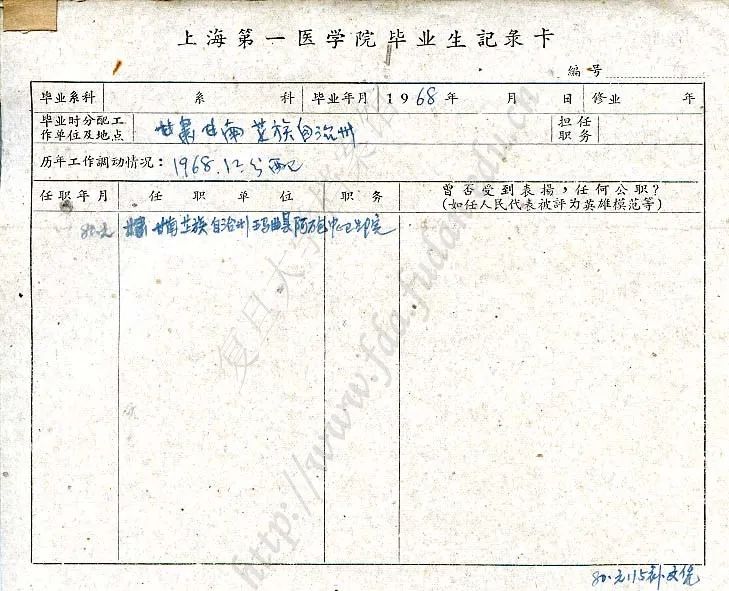 上海第一医学院毕业生記录卡
編号
毕业系科 系 科 毕业年月 1968年 月 日 修业 年
毕业时分配工作单位及地点 甘肃甘南芷族自治州 担任职务
历年工作調动情况: 1968.12分配
任职年月 任职单位 职务 曾否受到表揚,任何公职?
(如任人民代表被評为英雄模范等)
80.元 甘肃 甘南芷族自治州玛曲县阿万仓中心卫生院
80.元.15补
复旦大学档案馆
http://www.fda.fudan.edu.cn